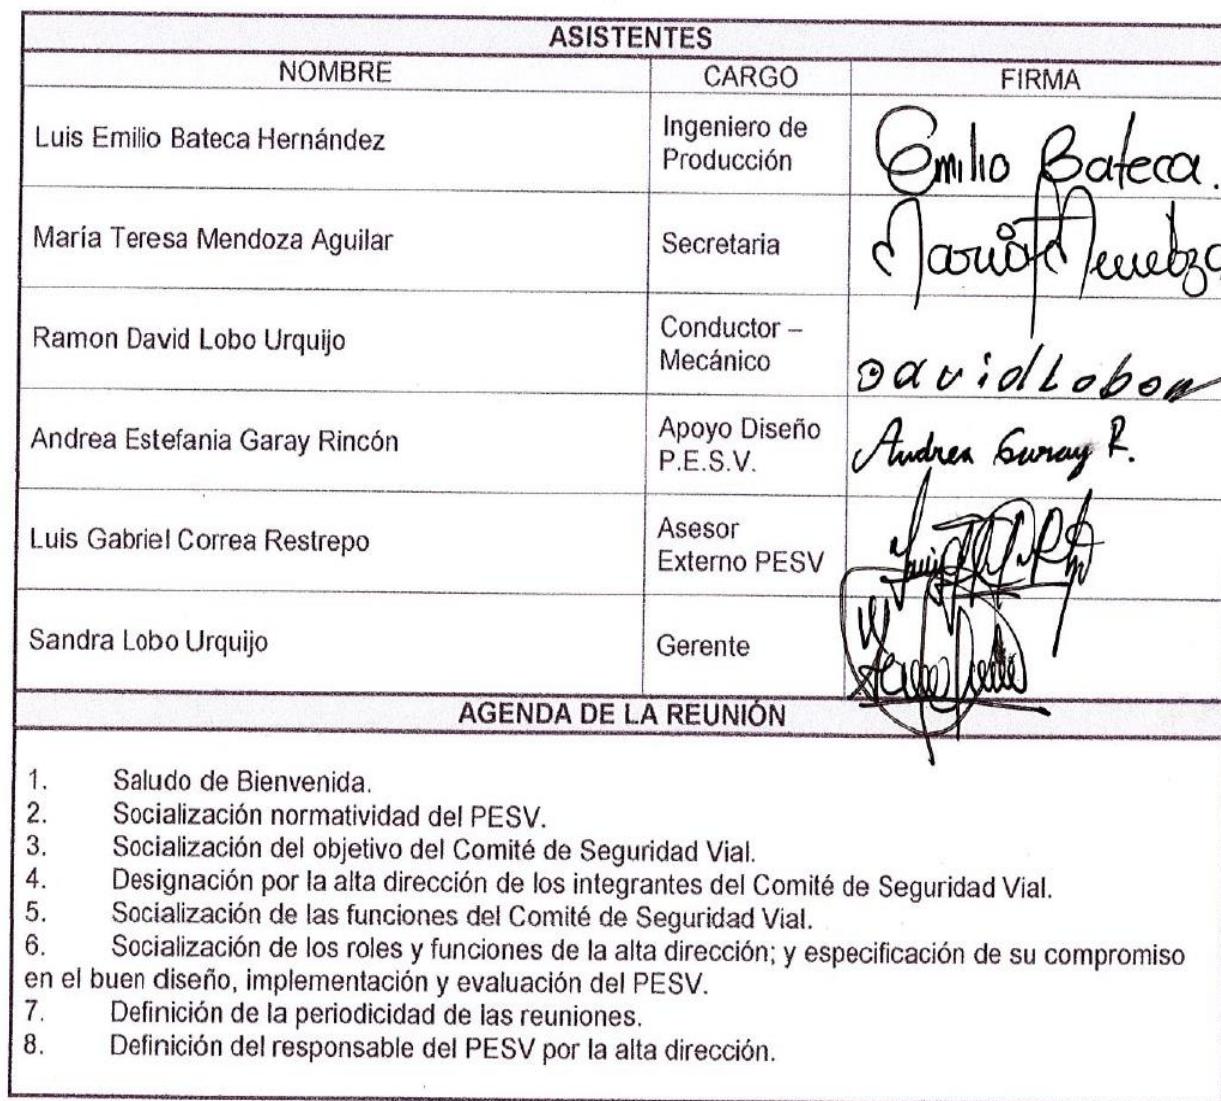 ASISTENTES
NOMBRE CARGO FIRMA
Luis Emilio Bateca Hernández Ingeniero de Producción Emilio Bateca.
María Teresa Mendoza Aguilar Secretaria María T Mendoza
Ramon David Lobo Urquijo Conductor – Mecánico David Lobo
Andrea Estefania Garay Rincón Apoyo Diseño P.E.S.V. Andrea Garay R.
Luis Gabriel Correa Restrepo Asesor Externo PESV Luis
Sandra Lobo Urquijo Gerente
AGENDA DE LA REUNIÓN
1. Saludo de Bienvenida.
2. Socialización normatividad del PESV.
3. Socialización del objetivo del Comité de Seguridad Vial.
4. Designación por la alta dirección de los integrantes del Comité de Seguridad Vial.
5. Socialización de las funciones del Comité de Seguridad Vial.
6. Socialización de los roles y funciones de la alta dirección; y especificación de su compromiso
en el buen diseño, implementación y evaluación del PESV.
7. Definición de la periodicidad de las reuniones.
8. Definición del responsable del PESV por la alta dirección.